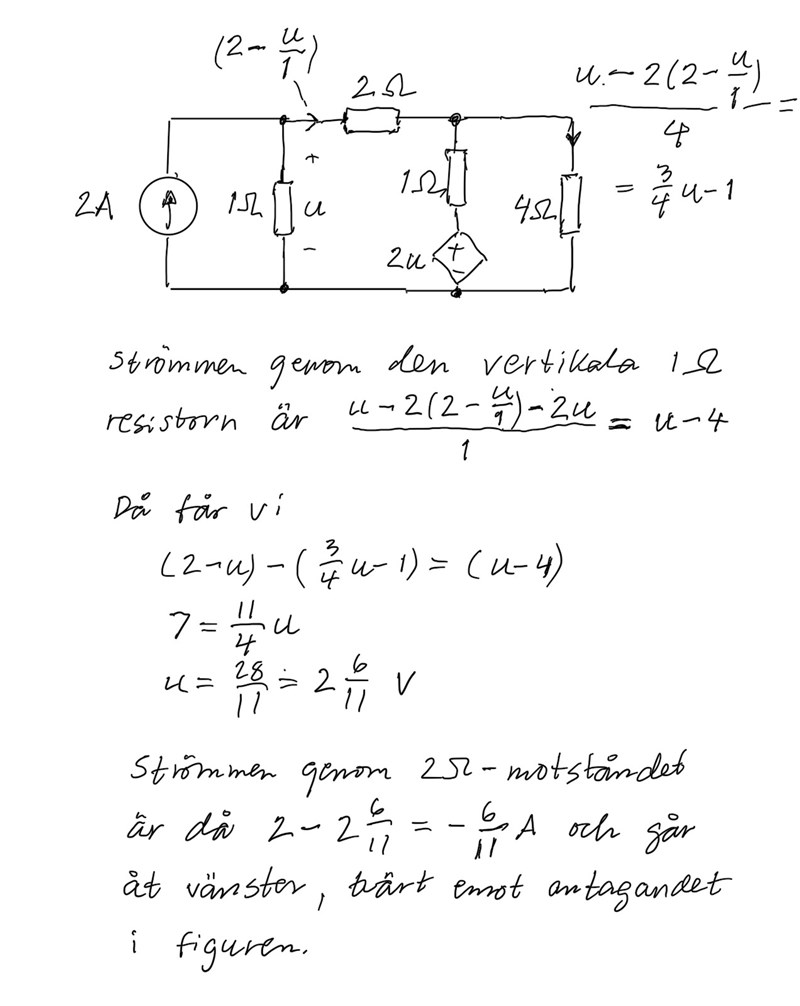 (2 - u/1)
2Ω
(u - 2(2 - u/1))/4 =
= 3/4 u - 1
2A
1Ω
+
u
-
1Ω
2u
+
-
4Ω
Strömmen genom den vertikala 1Ω
resistorn är (u - 2(2 - u/1) - 2u)/1 = u - 4
Då får vi
(2 - u) - (3/4 u - 1) = (u - 4)
7 = 11/4 u
u = 28/11 = 2 6/11 V
Strömmen genom 2Ω - motståndet
är då 2 - 2 6/11 = - 6/11 A och går
åt vänster, tvärt emot antagandet
i figuren.